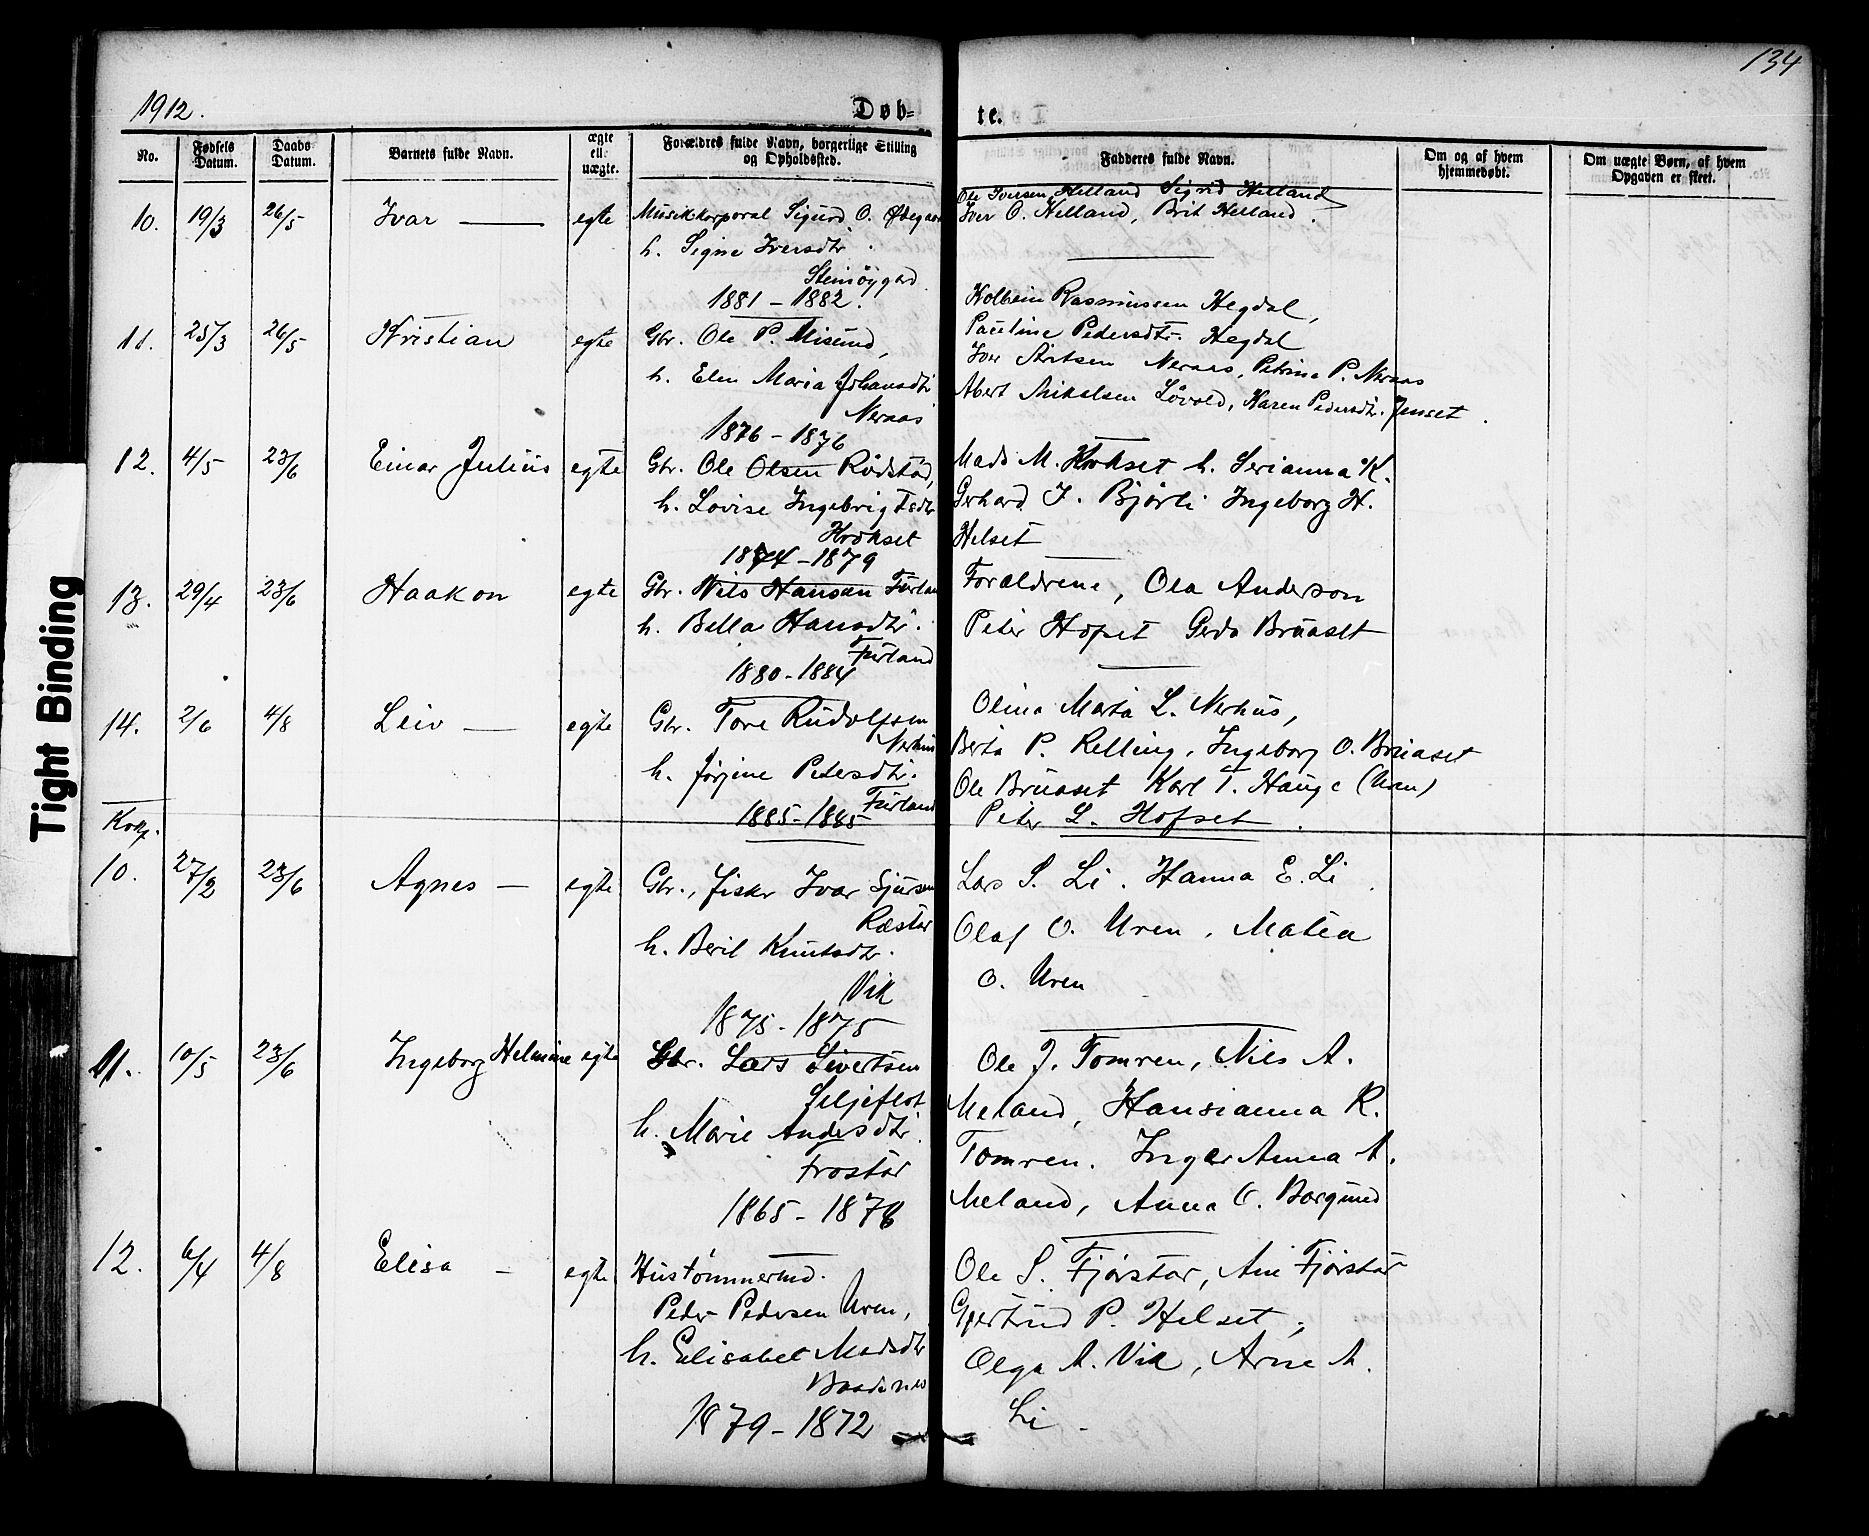 134
1912.
Døb-
te.
No.
Fødsels Datum.
Daabs Datum.
Barnets fulde Navn.
ægte ell. uægte.
Forældres fulde Navn, borgerlige Stilling og Opholdssted.
Fadderes fulde Navn.
Om og af hvem hjemmedøbt.
Om uægte Børn, af hvem Opgaven er skeet.
10. 19/3 26/5 Ivar — egte
Musikkorporal Sigurd O. Ødegaard
h. Signe Iversdtr.
1881 - 1882.
Ole Iversen Helland Sigrid Helland
Iver O. Helland, Brit Helland.
11. 25/3 26/5 Kristian egte
Gbr. Ole P. Misund,
h. Elen Maria Johansdtr
Neraas
1876 - 1876
Kolbein Rasmussen Hegdal,
Pauline Pedersdtr. Hegdal
Iver Neraas, Petrine P. Neraas
Mikalsen Løvold, Karen Pedersdtr. Jenset
12. 4/5 23/6 Einar Julius egte
Gbr. Ole Olsen Rødstøl,
h. Lovise Ingebrigtsdtr
Krokset
1874 - 1879
Mads M. Krokset h. Serianna K.
Gerhard I. Bjørli Ingeborg H.
Helset
13. 29/4 23/6 Haakon egte
Gbr. Nils Hansen Furland
h. Bella Hansdtr.
Furland
1880 - 1884
Forældrene, Ola Anderson
Peter Hofset Gerda Bruaset
14. 2/6 4/8 Leiv — egte
Gbr. Tore Rudolfsen
Nerhus
h. Jørgine Petersdtr.
Furland
1885 - 1885
Olina Marta L. Nerhus,
Berta P. Relling, Ingeborg O. Bruaset
Ole Bruaset Karl T. Hauge (Uren)
Peter L. Hofset.
10. 27/2 23/6 Agnes — egte
Gbr., fisker Ivar Sjursen
Ræstad
h. Beril Knutsdtr.
Vik
1875 - 1875
Lars S. Li. Hanna E. Li
Olaf O. Uren, Matea
O. Uren
11. 10/5 23/6 Ingeborg Helmine egte
Gbr. Lars Sivertsen
Seljeflot
h. Marie Andersdtr.
Frostad
1865 - 1876
Ole J. Tomren, Nils A.
Meland, Hansianna R.
Tomren. Inger Anna A.
Meland, Anna O. Borgund
12. 6/4 4/8 Elisa — egte
Hustømmermd.
Peder Pedersen Uren,
h. Elisabet Madsdtr
Baadsnes
1879 - 1872
Ole S. Fjørstad, Ane Fjørstad
Gjertrud P. Helset,
Olga A. Vik, Arne A.
Li
Tight Binding